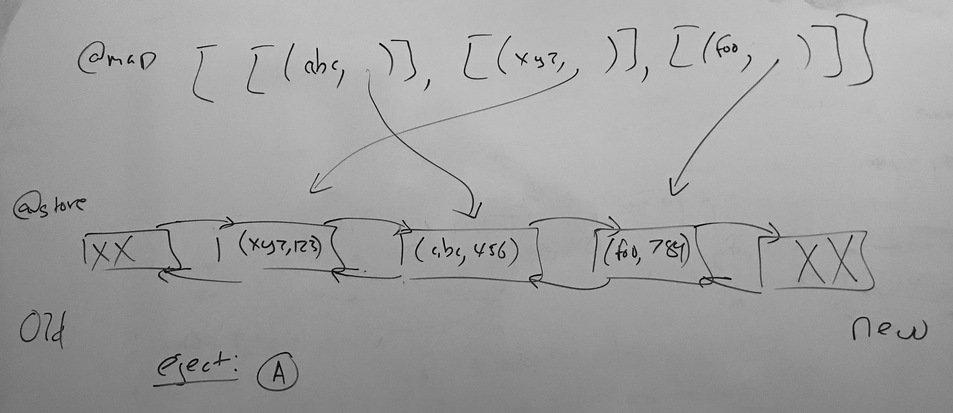 @map [ [(abc, )], [(xyz, )], [(foo, )]]
@store
XX (xyz,123) (abc,456) (foo,789) XX
Old new
eject: A